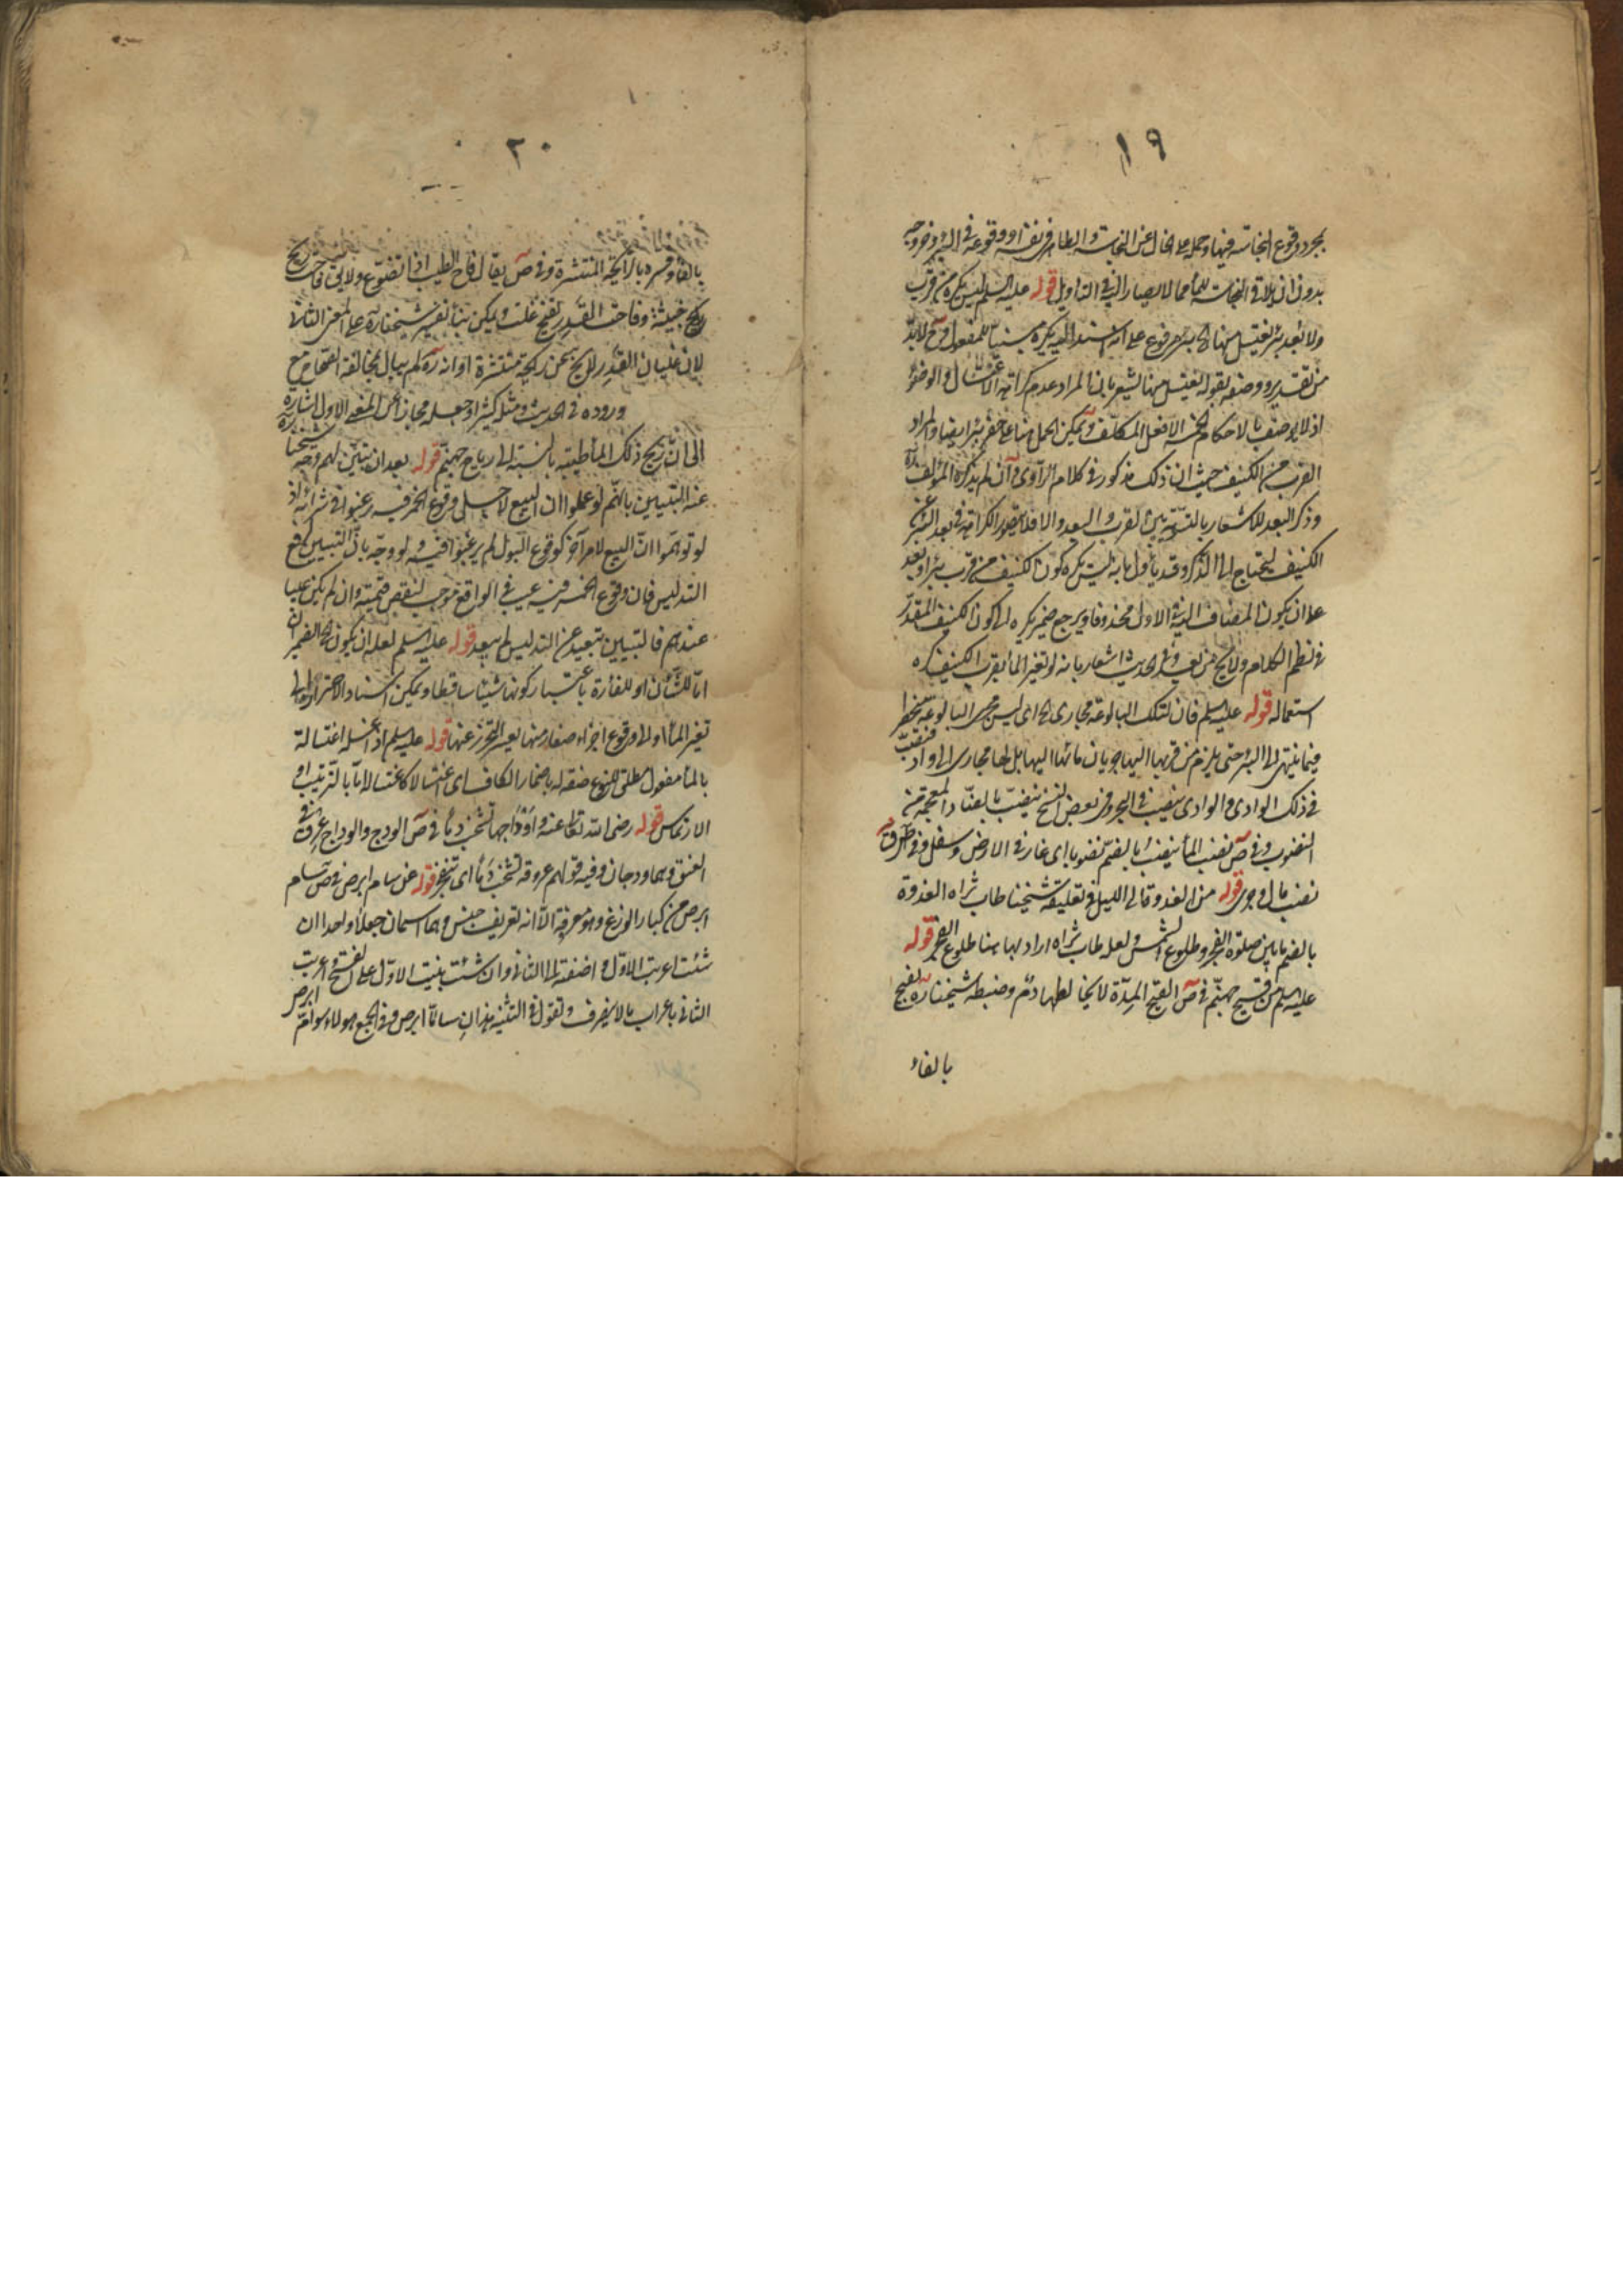 ١٩
بمجرد وقوع النجاسة فيها وحمله على الخالى عن النجاسة والطاهر فى نفسه او وقوعه فى البئر وخروجه
بدون ان يلاقى النجاسة للماء مما لا يصار اليه فى التاويل قوله عليه السلم ليس يكره من قرب
ولا بعد بئر يغتسل منها بئر مرفوع على انه اسند اليه يكره مبنيا للمفعول وح لابد
من تقدير ووصفه بقوله يغتسل منها ليشعر بان المراد عدم كراهة الاغتسال والوضوء
اذ لا يوصف بالاحكام الخمسة الا فعل المكلف ويمكن الحمل هنا على حفر بئر ايضا والمراد
القرب من الكنيف حيث ان ذلك مذكور فى كلام الراوى وان لم يذكره المؤلف ره
وذكر البعد للاشعار بالتسوية بين القرب والبعد والا فلا يتصور الكراهة فى بعد البئر عن
الكنيف ليحتاج الى الذكر وقد يأول بانه ليس يكره كون الكنيف من قرب بئر او بعد
على ان يكون المضاف اليه الاول محذوفا ويرجع ضمير يكره الى كون الكنيف المقدر
فى نظم الكلام ولا يخ من بعد وفى الحديث اشعار بانه لو تغير الماء بقرب الكنيف كره
استعماله قوله عليه السلم فان لتلك البالوعة مجارى اى ليس مجرى البالوعة منحصرا
فيما ينتهى الى البئر حتى يلزم من قربها اليها جريان مائها اليها بل لها مجارى الى واد فينصب
فى ذلك الوادى والوادى ينصب فى البحر وفى بعض النسخ ينضب بالضاد المعجمة من
النضوب وفى ص نضب الماء ينضب بالضم نضوبا اى غار فى الارض وسفل وفى ق
نضب سال وجرى قوله من الغدوة الى الليل فى تعليقة شيخنا طاب ثراه الغدوة
بالضم ما بين صلوة الفجر وطلوع الشمس ولعله طاب ثراه اراد بها هنا طلوع الفجر قوله
عليه السلم من قيح جهنم فى ص القيح المدة لا يخالطها دم وضبطه شيخنا ره بفيح
بالفاء
٢٠
بالفاء وفسره بالرائحة المنتشرة وفى ص يقال فاح الطيب اذا تضوع ولا يق فاحت ريح
ريح خبيثة وفاحت القدر تفيح غلت ويمكن بناء تفسير شيخنا ره على المعنى الثانى
لان غليان القدر لا يخ عن رائحة منتشرة او انه ره لم يبال بمخالفة الصحاح مع
وروده فى الحديث ومثله كثيرا وجعله مجازا عن المعنى الاول اشارة
الى ان ريح ذلك الماء طيبة بالنسبة الى رياح جهنم قوله بعد ان يبين لهم وجه شيخنا ره
عنه التبيين بانهم لو علموا ان البيع لاجل وقوع الخمر فيه رغبوا فى شرائه اذ
لو توهموا ان البيع لامر آخر كوقوع البول لم يرغبوا فيه ولو وجه بان التبيين لدفع
التدليس فان وقوع الخمر فيه عيب فى الواقع موجب لنقص قيمته وان لم يكن عيبا
عندهم فالتبيين تبعيد عن التدليس لم يبعد قوله عليه السلم لعله ان يكون الضمير ان
اما للشأن او للفأرة باعتبار كونها شيئا ساقطا ويمكن اسناد الاحتراز الى
تغير الماء اولا ووقوع اجزاء صغار منها يعسر التحرز عنها قوله عليه السلم اذا غسله اغتساله
بالماء مفعول مطلق للنوع ضفه له باضمار الكاف اى اغتسالا كاغتساله بالترتيب او
الارتماس قوله رضى الله تعالى عنه واوداجها تشخب دما فى ص الودج والوداج عرق فى
العنق وهما ودجان وفيه قولهم عروقه تشخب دما اى تتفجر قوله عن سام ابرص فى ص سام
ابرص من كبار الوزغ وهو معرفة الا انه تعريف جنس وهما اسمان جعلا واحدا ان
شئت اعربت الاول واضفته الى الثانى وان شئت بنيت الاول على الفتح واعربت
الثانى باعراب ما لا ينصرف وتقول فى التثنية هذان ساما ابرص وفى الجمع هولاء سوام ابرص